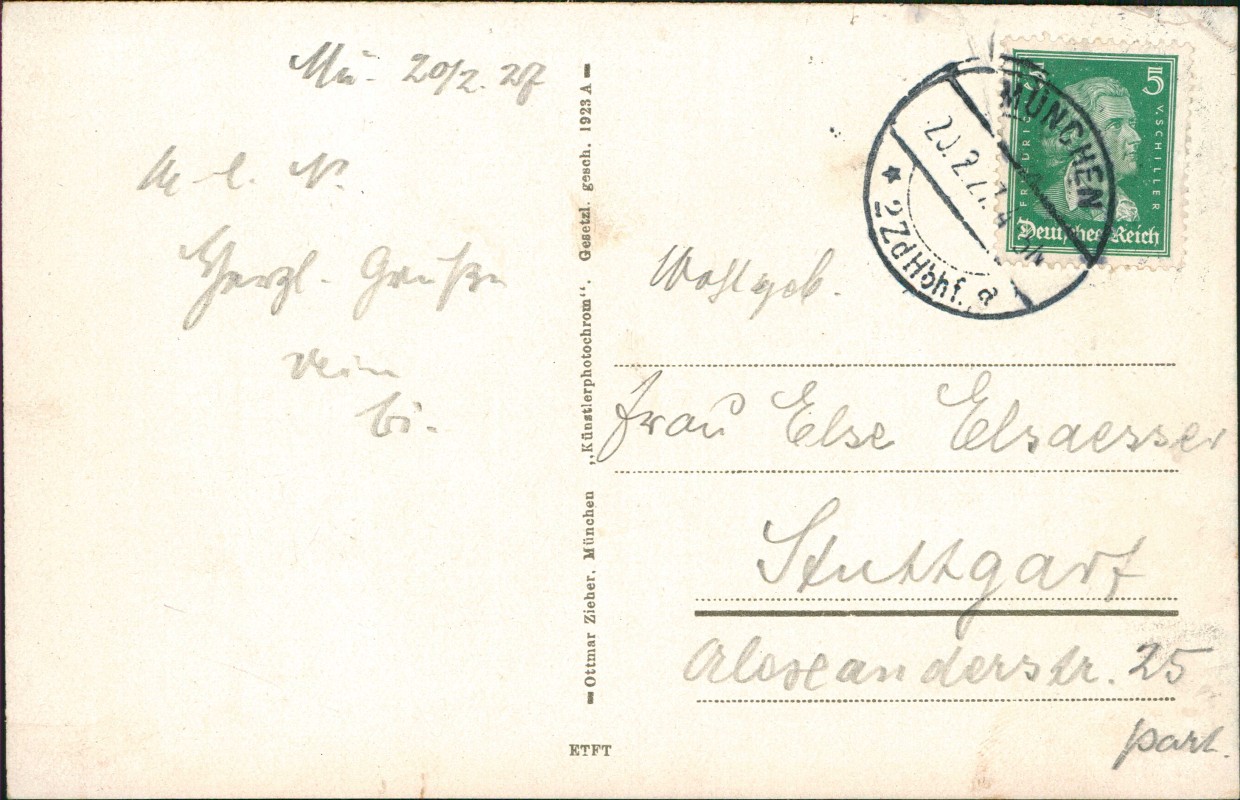 Mü. 20/2. 27
M. l. N.
Herzl. Grüße
dein
Bi.
Ottmar Zieher, München „Künstlerphotochrom“. Gesetzl. gesch. 1923 A
ETFT
MÜNCHEN
20.2.27.
2ZdHbhf. a
5
FRIEDRICH V. SCHILLER
Deutsches Reich
Wohlgeb.
Frau Else Elsaesser
Stuttgart
Alexanderstr. 25
part.